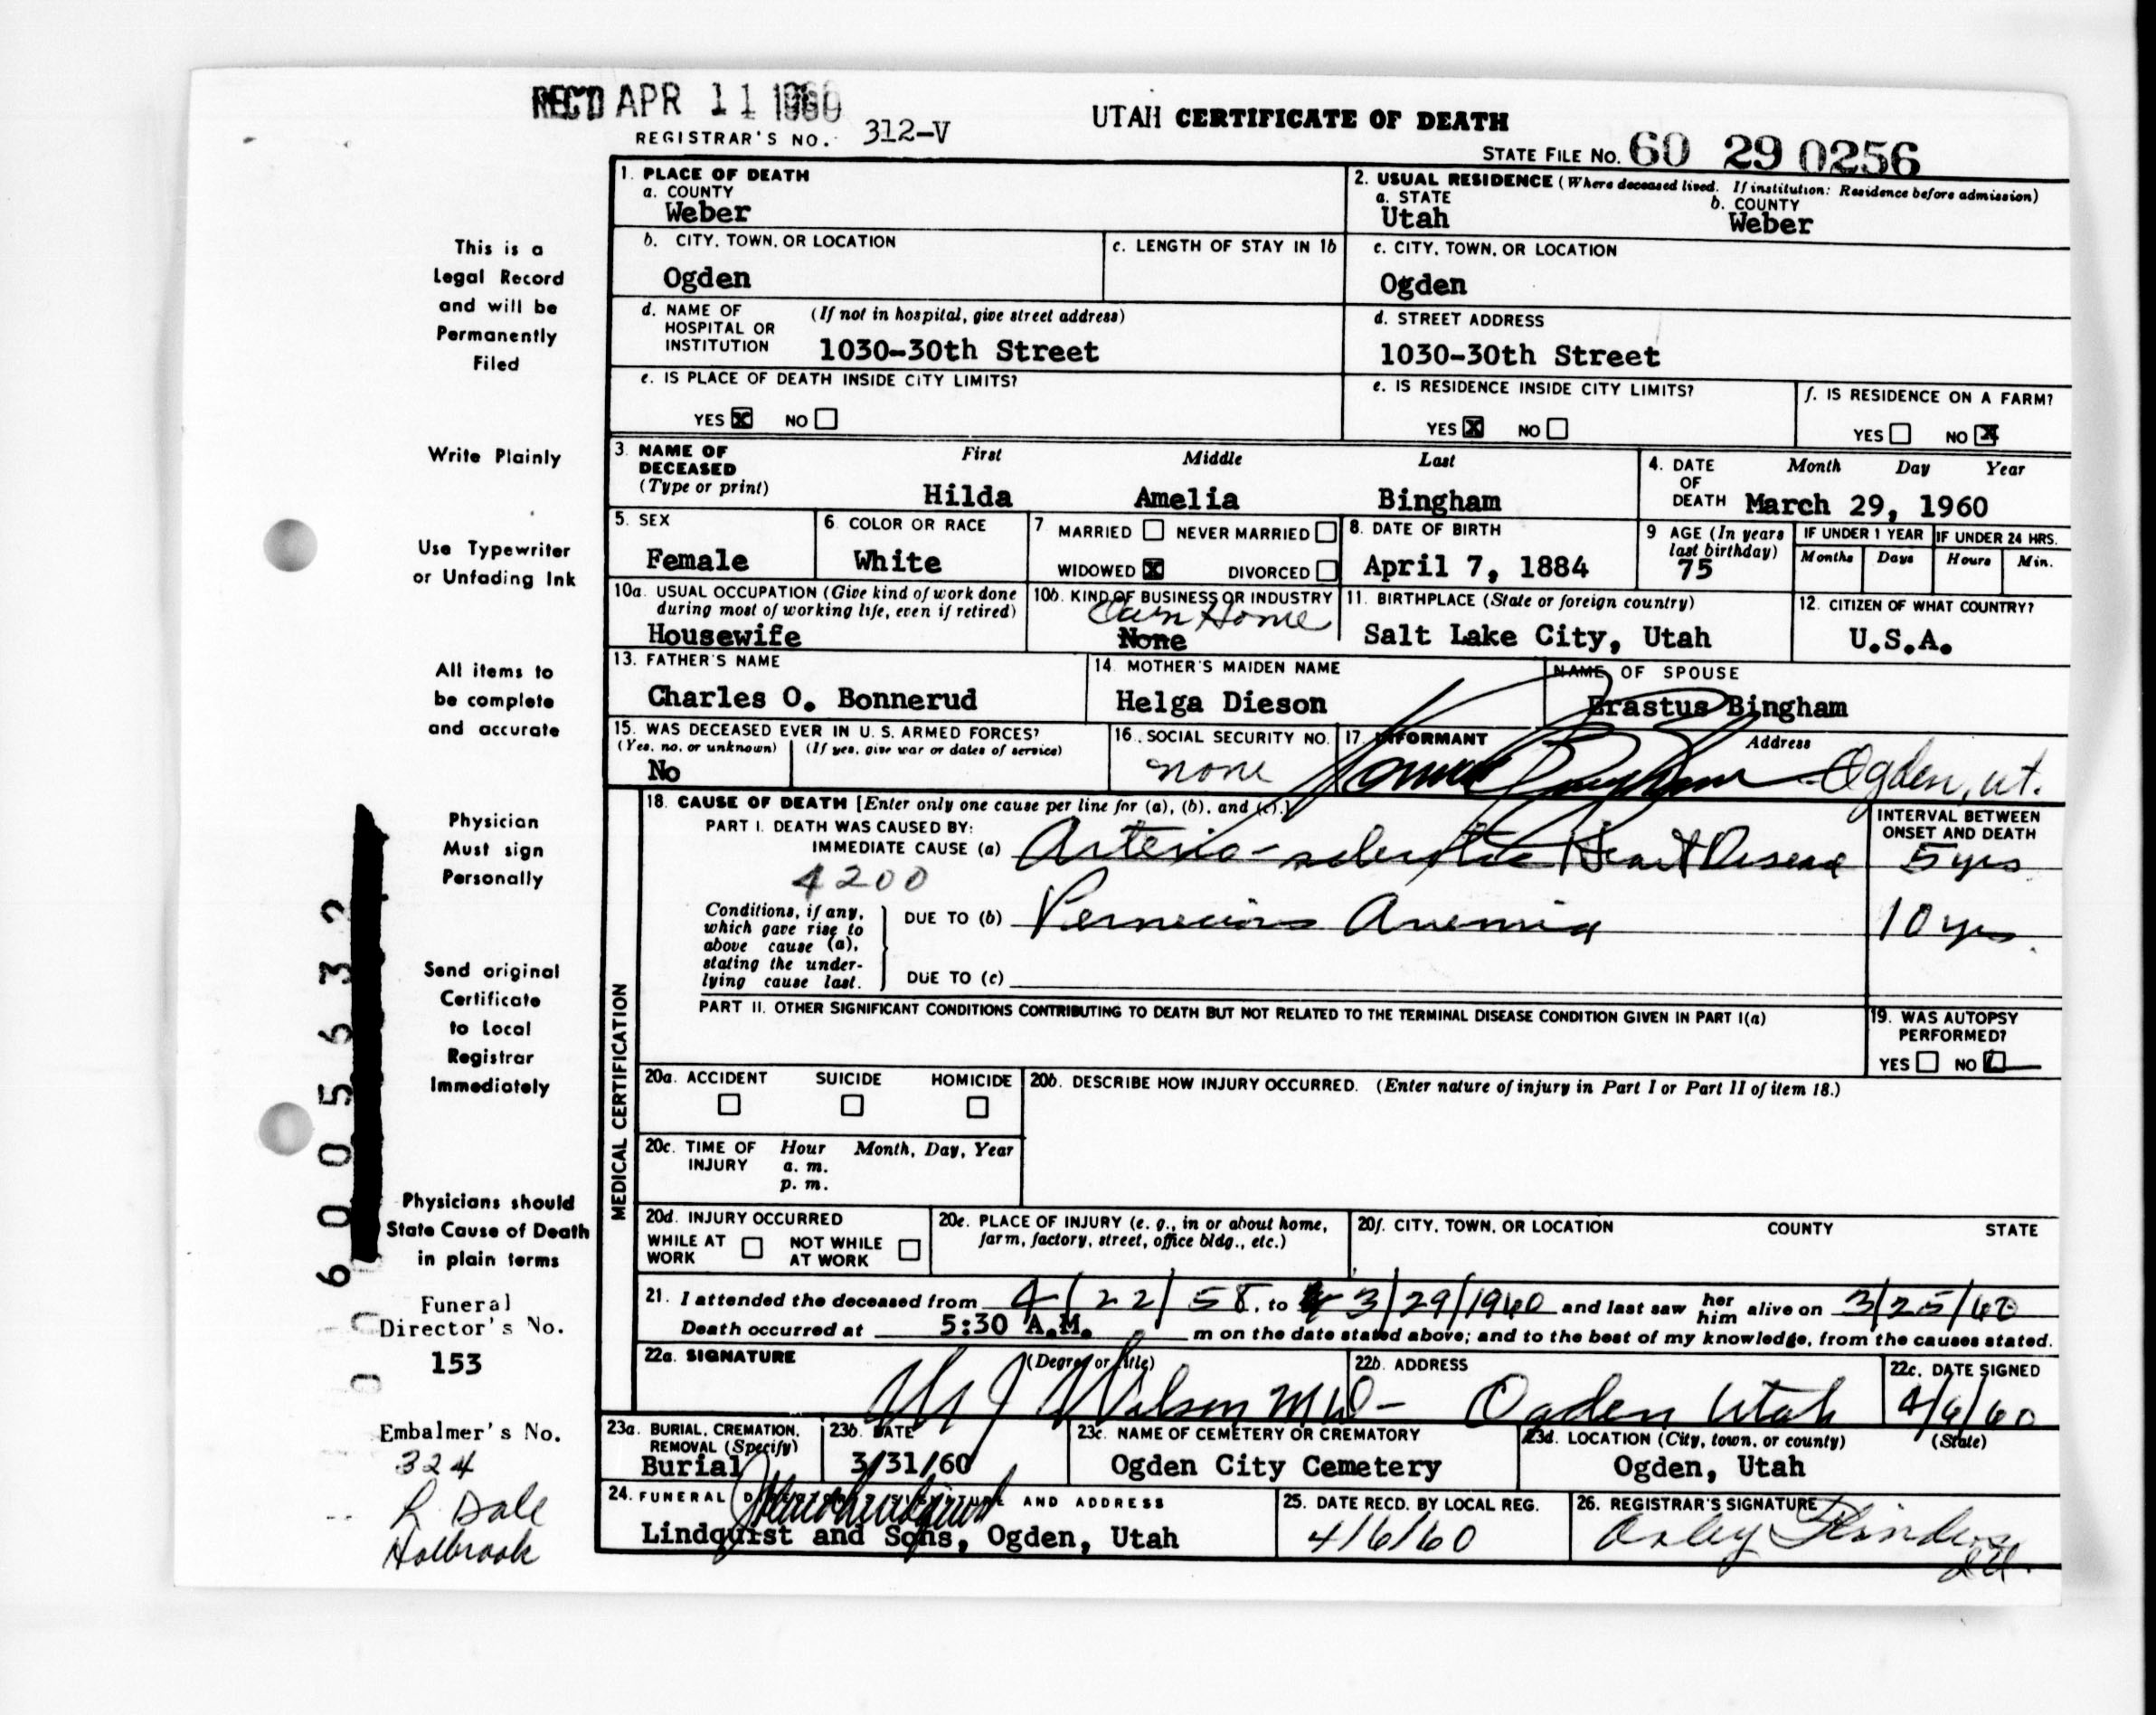 REC'D APR 11 1960
REGISTRAR'S NO. 312-V
UTAH CERTIFICATE OF DEATH
STATE FILE NO. 60 29 0256
This is a
Legal Record
and will be
Permanently
Filed
Write Plainly
Use Typewriter
or Unfading Ink
All items to
be complete
and accurate
Physician
Must sign
Personally
Send original
Certificate
to Local
Registrar
Immediately
Physicians should
State Cause of Death
in plain terms
Funeral
Director's No.
153
Embalmer's No.
324
R Dale
Holbrook
6005632
1. PLACE OF DEATH
a. COUNTY
Weber
2. USUAL RESIDENCE (Where deceased lived. If institution: Residence before admission)
a. STATE b. COUNTY
Utah Weber
b. CITY, TOWN, OR LOCATION
Ogden
c. LENGTH OF STAY IN 1b
c. CITY, TOWN, OR LOCATION
Ogden
d. NAME OF (If not in hospital, give street address)
HOSPITAL OR
INSTITUTION 1030-30th Street
d. STREET ADDRESS
1030-30th Street
e. IS PLACE OF DEATH INSIDE CITY LIMITS?
YES X NO
e. IS RESIDENCE INSIDE CITY LIMITS?
YES X NO
f. IS RESIDENCE ON A FARM?
YES NO X
3. NAME OF DECEASED First Middle Last
(Type or print) Hilda Amelia Bingham
4. DATE OF DEATH Month Day Year
March 29, 1960
5. SEX
Female
6. COLOR OR RACE
White
7 MARRIED NEVER MARRIED
WIDOWED X DIVORCED
8. DATE OF BIRTH
April 7, 1884
9 AGE (In years last birthday)
75
IF UNDER 1 YEAR IF UNDER 24 HRS.
Months Days Hours Min.
10a. USUAL OCCUPATION (Give kind of work done
during most of working life, even if retired)
Housewife
10b. KIND OF BUSINESS OR INDUSTRY
Own Home
None
11. BIRTHPLACE (State or foreign country)
Salt Lake City, Utah
12. CITIZEN OF WHAT COUNTRY?
U.S.A.
13. FATHER'S NAME
Charles O. Bonnerud
14. MOTHER'S MAIDEN NAME
Helga Dieson
NAME OF SPOUSE
Erastus Bingham
15. WAS DECEASED EVER IN U. S. ARMED FORCES?
(Yes, no, or unknown) (If yes, give war or dates of service)
No
16. SOCIAL SECURITY NO.
none
17. INFORMANT Address
Bingham Ogden, ut.
MEDICAL CERTIFICATION
18. CAUSE OF DEATH [Enter only one cause per line for (a), (b), and (c).]
PART I. DEATH WAS CAUSED BY:
IMMEDIATE CAUSE (a) Arterio-sclerotic Heart Disease
4200
INTERVAL BETWEEN
ONSET AND DEATH
5 yrs
Conditions, if any,
which gave rise to
above cause (a),
stating the under-
lying cause last.
DUE TO (b) Pernecious Anemia
10 yrs.
DUE TO (c)
PART II. OTHER SIGNIFICANT CONDITIONS CONTRIBUTING TO DEATH BUT NOT RELATED TO THE TERMINAL DISEASE CONDITION GIVEN IN PART I(a)
19. WAS AUTOPSY
PERFORMED?
YES NO
20a. ACCIDENT SUICIDE HOMICIDE
20b. DESCRIBE HOW INJURY OCCURRED. (Enter nature of injury in Part I or Part II of item 18.)
20c. TIME OF INJURY Hour Month, Day, Year
a. m.
p. m.
20d. INJURY OCCURRED
WHILE AT WORK NOT WHILE AT WORK
20e. PLACE OF INJURY (e. g., in or about home,
farm, factory, street, office bldg., etc.)
20f. CITY, TOWN, OR LOCATION COUNTY STATE
21. I attended the deceased from 4/22/58, to 3/29/1960 and last saw her him alive on 3/25/60
Death occurred at 5:30 A.M. m on the date stated above; and to the best of my knowledge, from the causes stated.
22a. SIGNATURE (Degree or title)
Wilson MD
22b. ADDRESS
Ogden Utah
22c. DATE SIGNED
4/6/60
23a. BURIAL, CREMATION,
REMOVAL (Specify)
Burial
23b. DATE
3/31/60
23c. NAME OF CEMETERY OR CREMATORY
Ogden City Cemetery
23d. LOCATION (City, town, or county) (State)
Ogden, Utah
24. FUNERAL DIRECTOR'S SIGNATURE AND ADDRESS
Lindquist and Sons, Ogden, Utah
25. DATE RECD. BY LOCAL REG.
4/6/60
26. REGISTRAR'S SIGNATURE